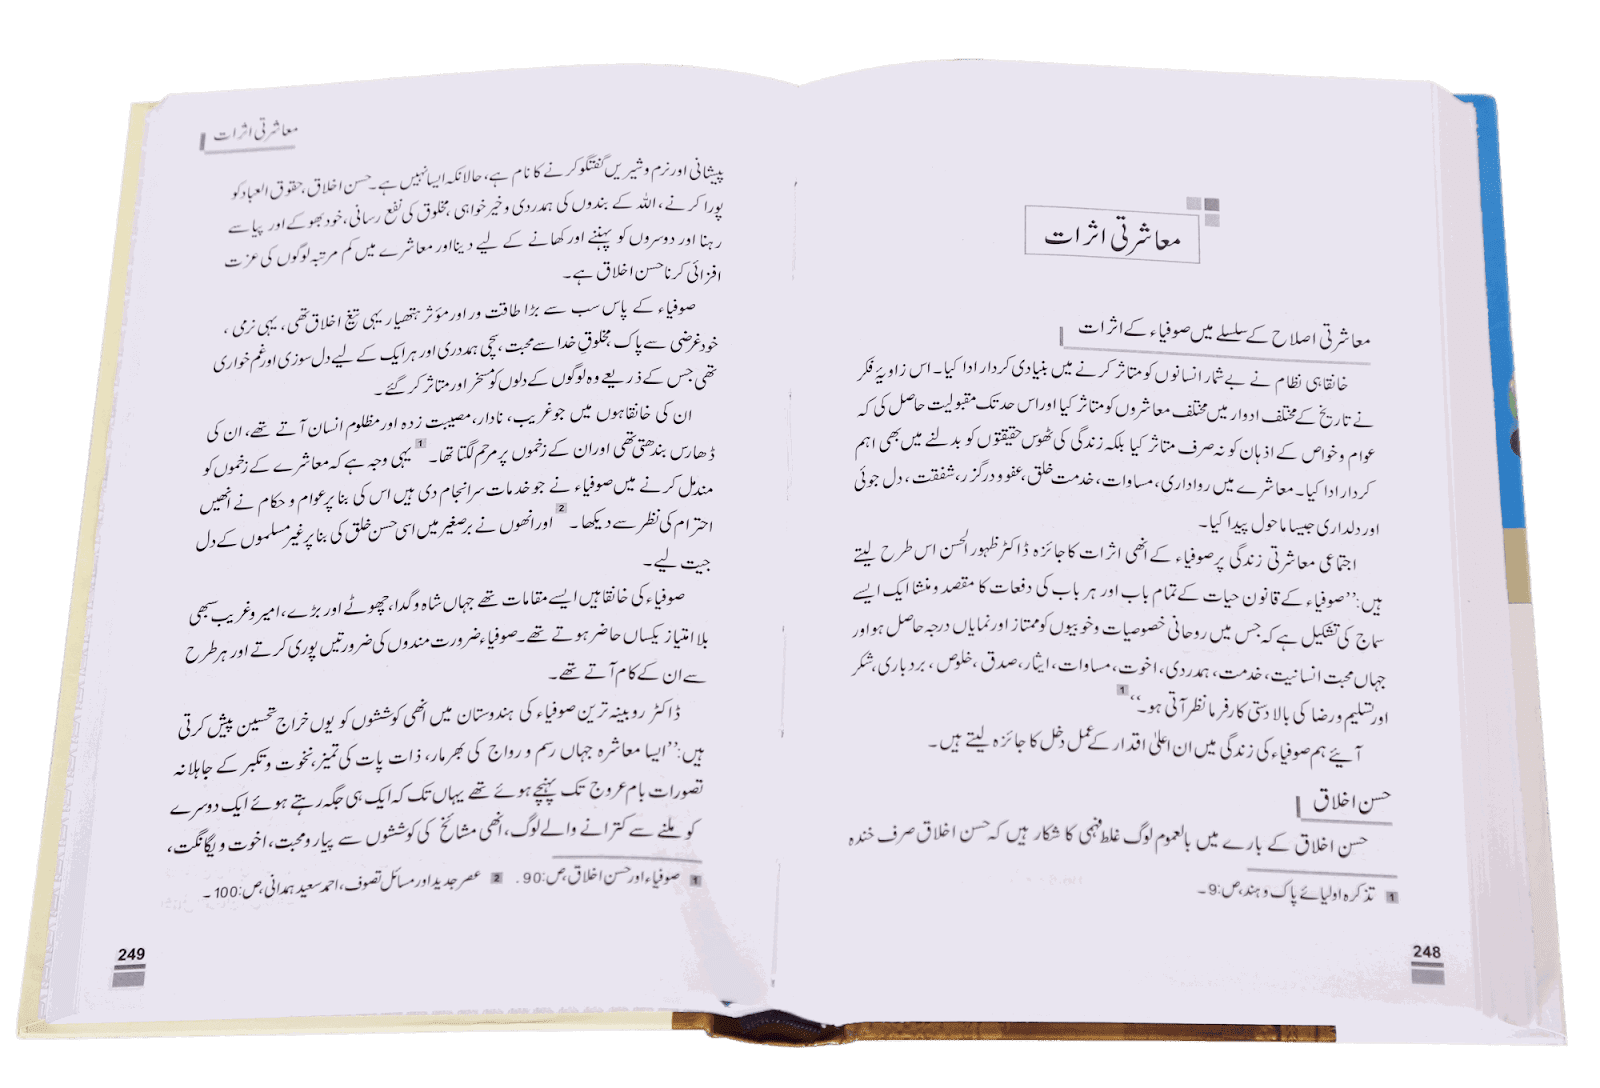 معاشرتی اثرات
معاشرتی اصلاح کے سلسلے میں صوفیاء کے اثرات
خانقاہی نظام نے بے شمار انسانوں کو متاثر کرنے میں بنیادی کردار ادا کیا۔ اس زاویۂ فکر
نے تاریخ کے مختلف ادوار میں مختلف معاشروں کو متاثر کیا اور اس حد تک مقبولیت حاصل کی کہ
عوام و خواص کے اذہان کو نہ صرف متاثر کیا بلکہ زندگی کی ٹھوس حقیقتوں کو بدلنے میں بھی اہم
کردار ادا کیا۔ معاشرے میں رواداری، مساوات، خدمت خلق، عفو و درگزر، شفقت، دل جوئی
اور دلداری جیسا ماحول پیدا کیا۔
اجتماعی معاشرتی زندگی پر صوفیاء کے انھی اثرات کا جائزہ ڈاکٹر ظہور الحسن اس طرح لیتے
ہیں: ’’صوفیاء کے قانون حیات کے تمام باب اور ہر باب کی دفعات کا مقصد و منشا ایک ایسے
سماج کی تشکیل ہے کہ جس میں روحانی خصوصیات و خوبیوں کو ممتاز اور نمایاں درجہ حاصل ہو اور
جہاں محبت انسانیت، خدمت، ہمدردی، اخوت، مساوات، ایثار، صدق، خلوص، بردباری، شکر
اور تسلیم و رضا کی بالا دستی کارفرما نظر آتی ہو۔‘‘ 1
آیئے ہم صوفیاء کی زندگی میں ان اعلیٰ اقدار کے عمل دخل کا جائزہ لیتے ہیں۔
حسن اخلاق
حسن اخلاق کے بارے میں بالعموم لوگ غلط فہمی کا شکار ہیں کہ حسن اخلاق صرف خندہ
1 تذکرہ اولیائے پاک و ہند، ص:9۔
248
معاشرتی اثرات
پیشانی اور نرم و شیریں گفتگو کرنے کا نام ہے، حالانکہ ایسا نہیں ہے۔ حسن اخلاق، حقوق العباد کو
پورا کرنے، اللہ کے بندوں کی ہمدردی و خیر خواہی، مخلوق کی نفع رسانی، خود بھوکے اور پیاسے
رہنا اور دوسروں کو پہننے اور کھانے کے لیے دینا اور معاشرے میں کم مرتبہ لوگوں کی عزت
افزائی کرنا حسن اخلاق ہے۔
صوفیاء کے پاس سب سے بڑا طاقت ور اور مؤثر ہتھیار یہی تیغ اخلاق تھی، یہی نرمی،
خودغرضی سے پاک، مخلوقِ خدا سے محبت، سچی ہمدردی اور ہر ایک کے لیے دل سوزی اور غم خواری
تھی جس کے ذریعے وہ لوگوں کے دلوں کو مسخر اور متاثر کر گئے۔
ان کی خانقاہوں میں جو غریب، نادار، مصیبت زدہ اور مظلوم انسان آتے تھے، ان کی
ڈھارس بندھتی تھی اور ان کے زخموں پر مرحم لگتا تھا۔ 1 یہی وجہ ہے کہ معاشرے کے زخموں کو
مندمل کرنے میں صوفیاء نے جو خدمات سرانجام دی ہیں اس کی بنا پر عوام و حکام نے انھیں
احترام کی نظر سے دیکھا۔ 2 اور انھوں نے برصغیر میں اسی حسن خلق کی بنا پر غیر مسلموں کے دل
جیت لیے۔
صوفیاء کی خانقاہیں ایسے مقامات تھے جہاں شاہ و گدا، چھوٹے اور بڑے، امیر و غریب سبھی
بلا امتیاز یکساں حاضر ہوتے تھے۔ صوفیاء ضرورت مندوں کی ضرورتیں پوری کرتے اور ہر طرح
سے ان کے کام آتے تھے۔
ڈاکٹر روبینہ ترین صوفیاء کی ہندوستان میں انھی کوششوں کو یوں خراج تحسین پیش کرتی
ہیں: ’’ایسا معاشرہ جہاں رسم و رواج کی بھرمار، ذات پات کی تمیز، نخوت و تکبر کے جاہلانہ
تصورات بام عروج تک پہنچے ہوئے تھے یہاں تک کہ ایک ہی جگہ رہتے ہوئے ایک دوسرے
کو ملنے سے کترانے والے لوگ، انھی مشائخ کی کوششوں سے پیار و محبت، اخوت و یگانگت،
1 صوفیاء اور حسن اخلاق، ص:90. 2 عصر جدید اور مسائل تصوف، احمد سعید ہمدانی، ص:100۔
249